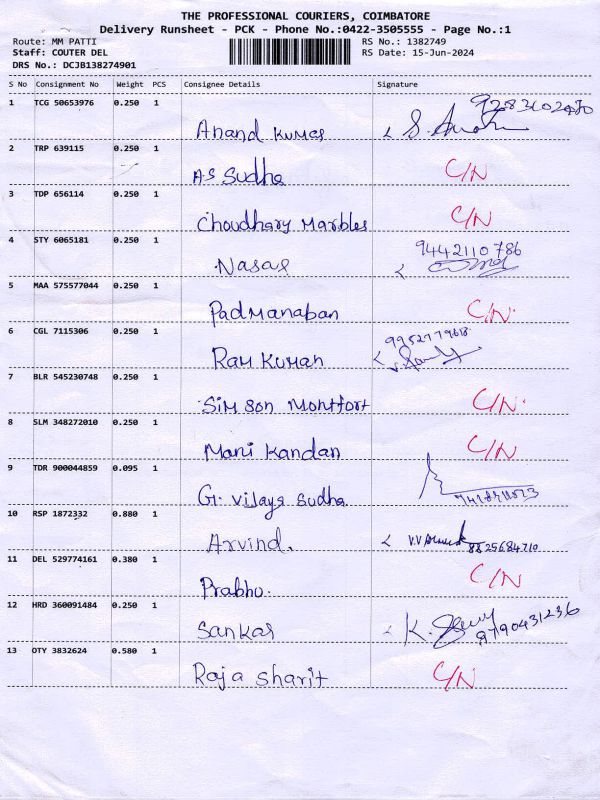 THE PROFESSIONAL COURIERS, COIMBATORE
Delivery Runsheet - PCK - Phone No.:0422-3505555 - Page No.:1
Route: MM PATTI RS No.: 1382749
Staff: COUTER DEL RS Date: 15-Jun-2024
DRS No.: DCJB138274901
S No Consignment No Weight PCS Consignee Details Signature
1 TCG 50653976 0.250 1
Anand Kumar 9283102470
2 TRP 639115 0.250 1
A.S Sudha C/N
3 TDP 656114 0.250 1
Choudhary Marbles C/N
4 STY 6065181 0.250 1 9442110786
Nasar
5 MAA 575577044 0.250 1
Padmanaban C/N.
6 CGL 7115306 0.250 1 9952779618
Ram Kumar
7 BLR 545230748 0.250 1
Simson Montfort C/N.
8 SLM 348272010 0.250 1
Mani Kandan C/N
9 TDR 900044859 0.095 1
G. Vijaya Sudha
10 RSP 1872332 0.880 1
Arvind. 8825684710
11 DEL 529774161 0.380 1
Prabhu. C/N
12 HRD 360091484 0.250 1
Sankar 9790431236
13 OTY 3832624 0.580 1
Raja Sharit C/N